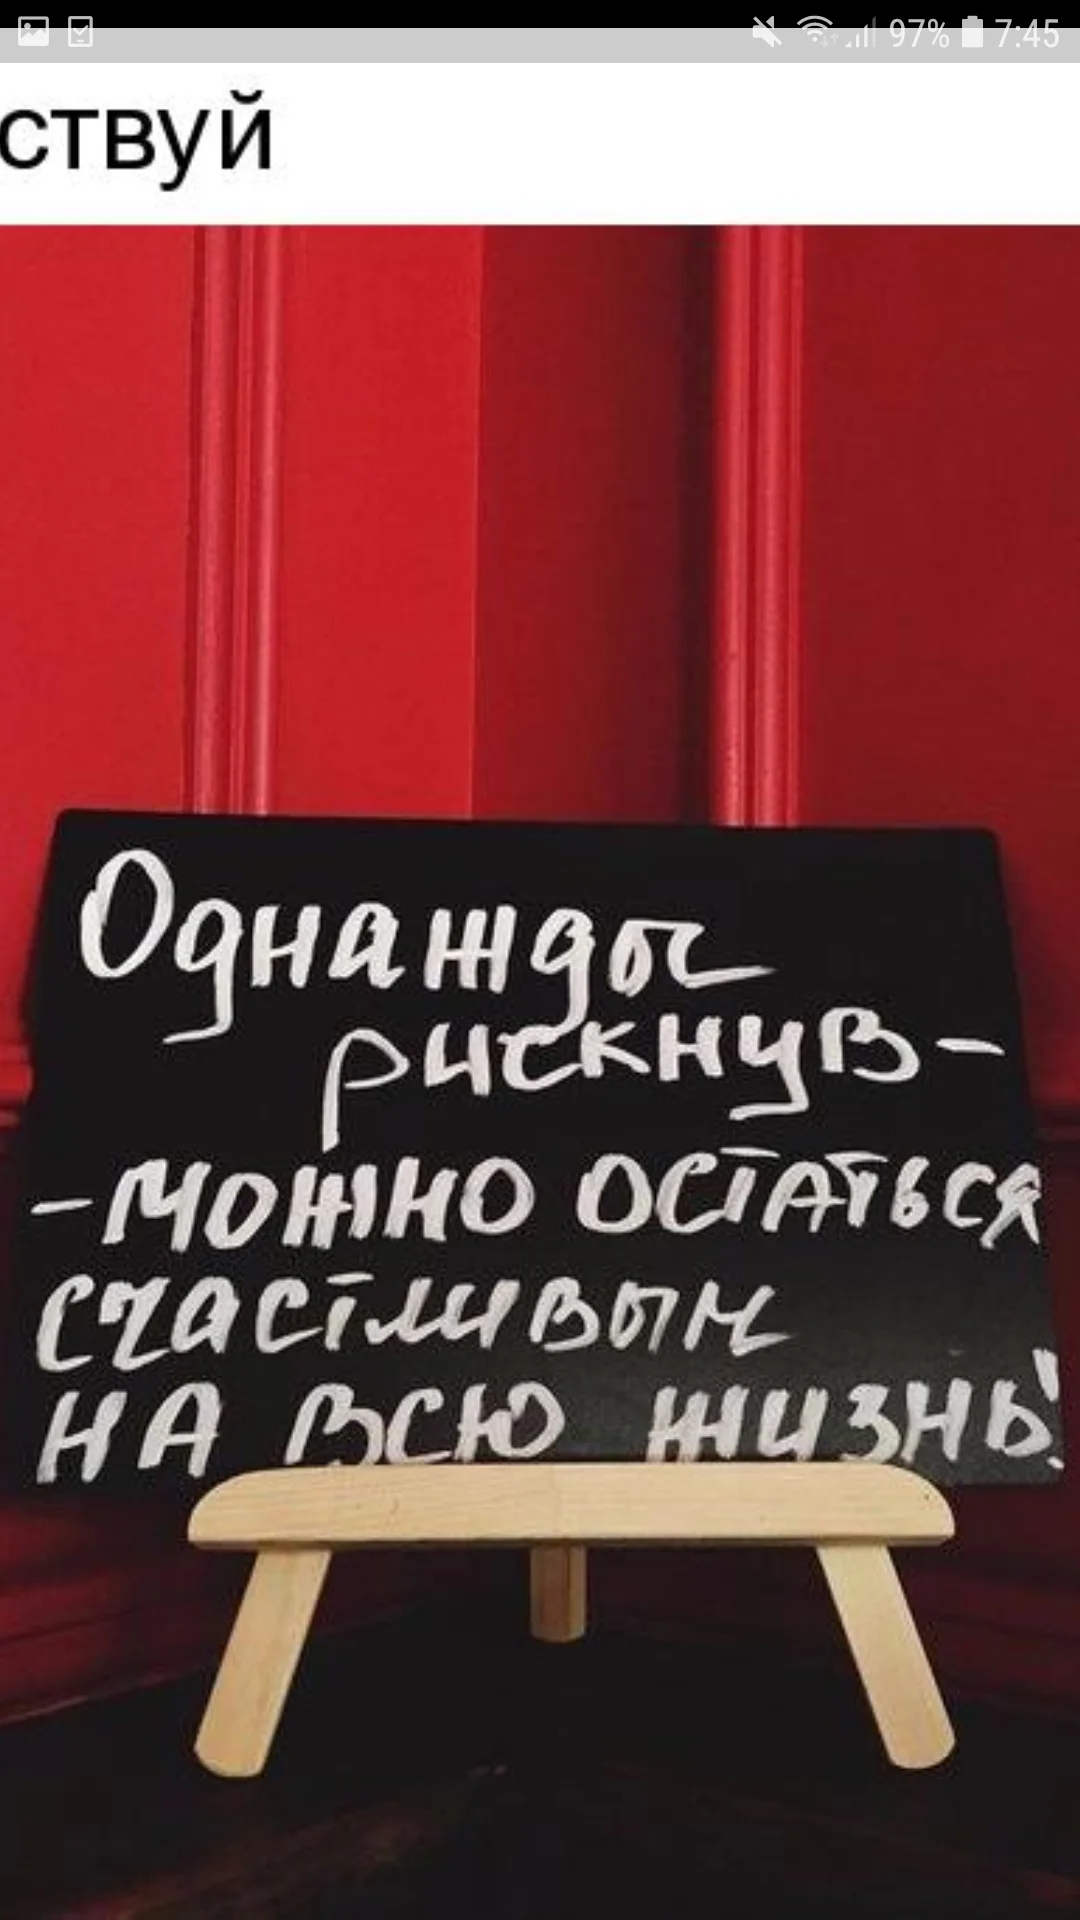 97% 7:45
ствуй
Однажды
рискнув-
-можно остаться
счастливым
на всю жизнь!